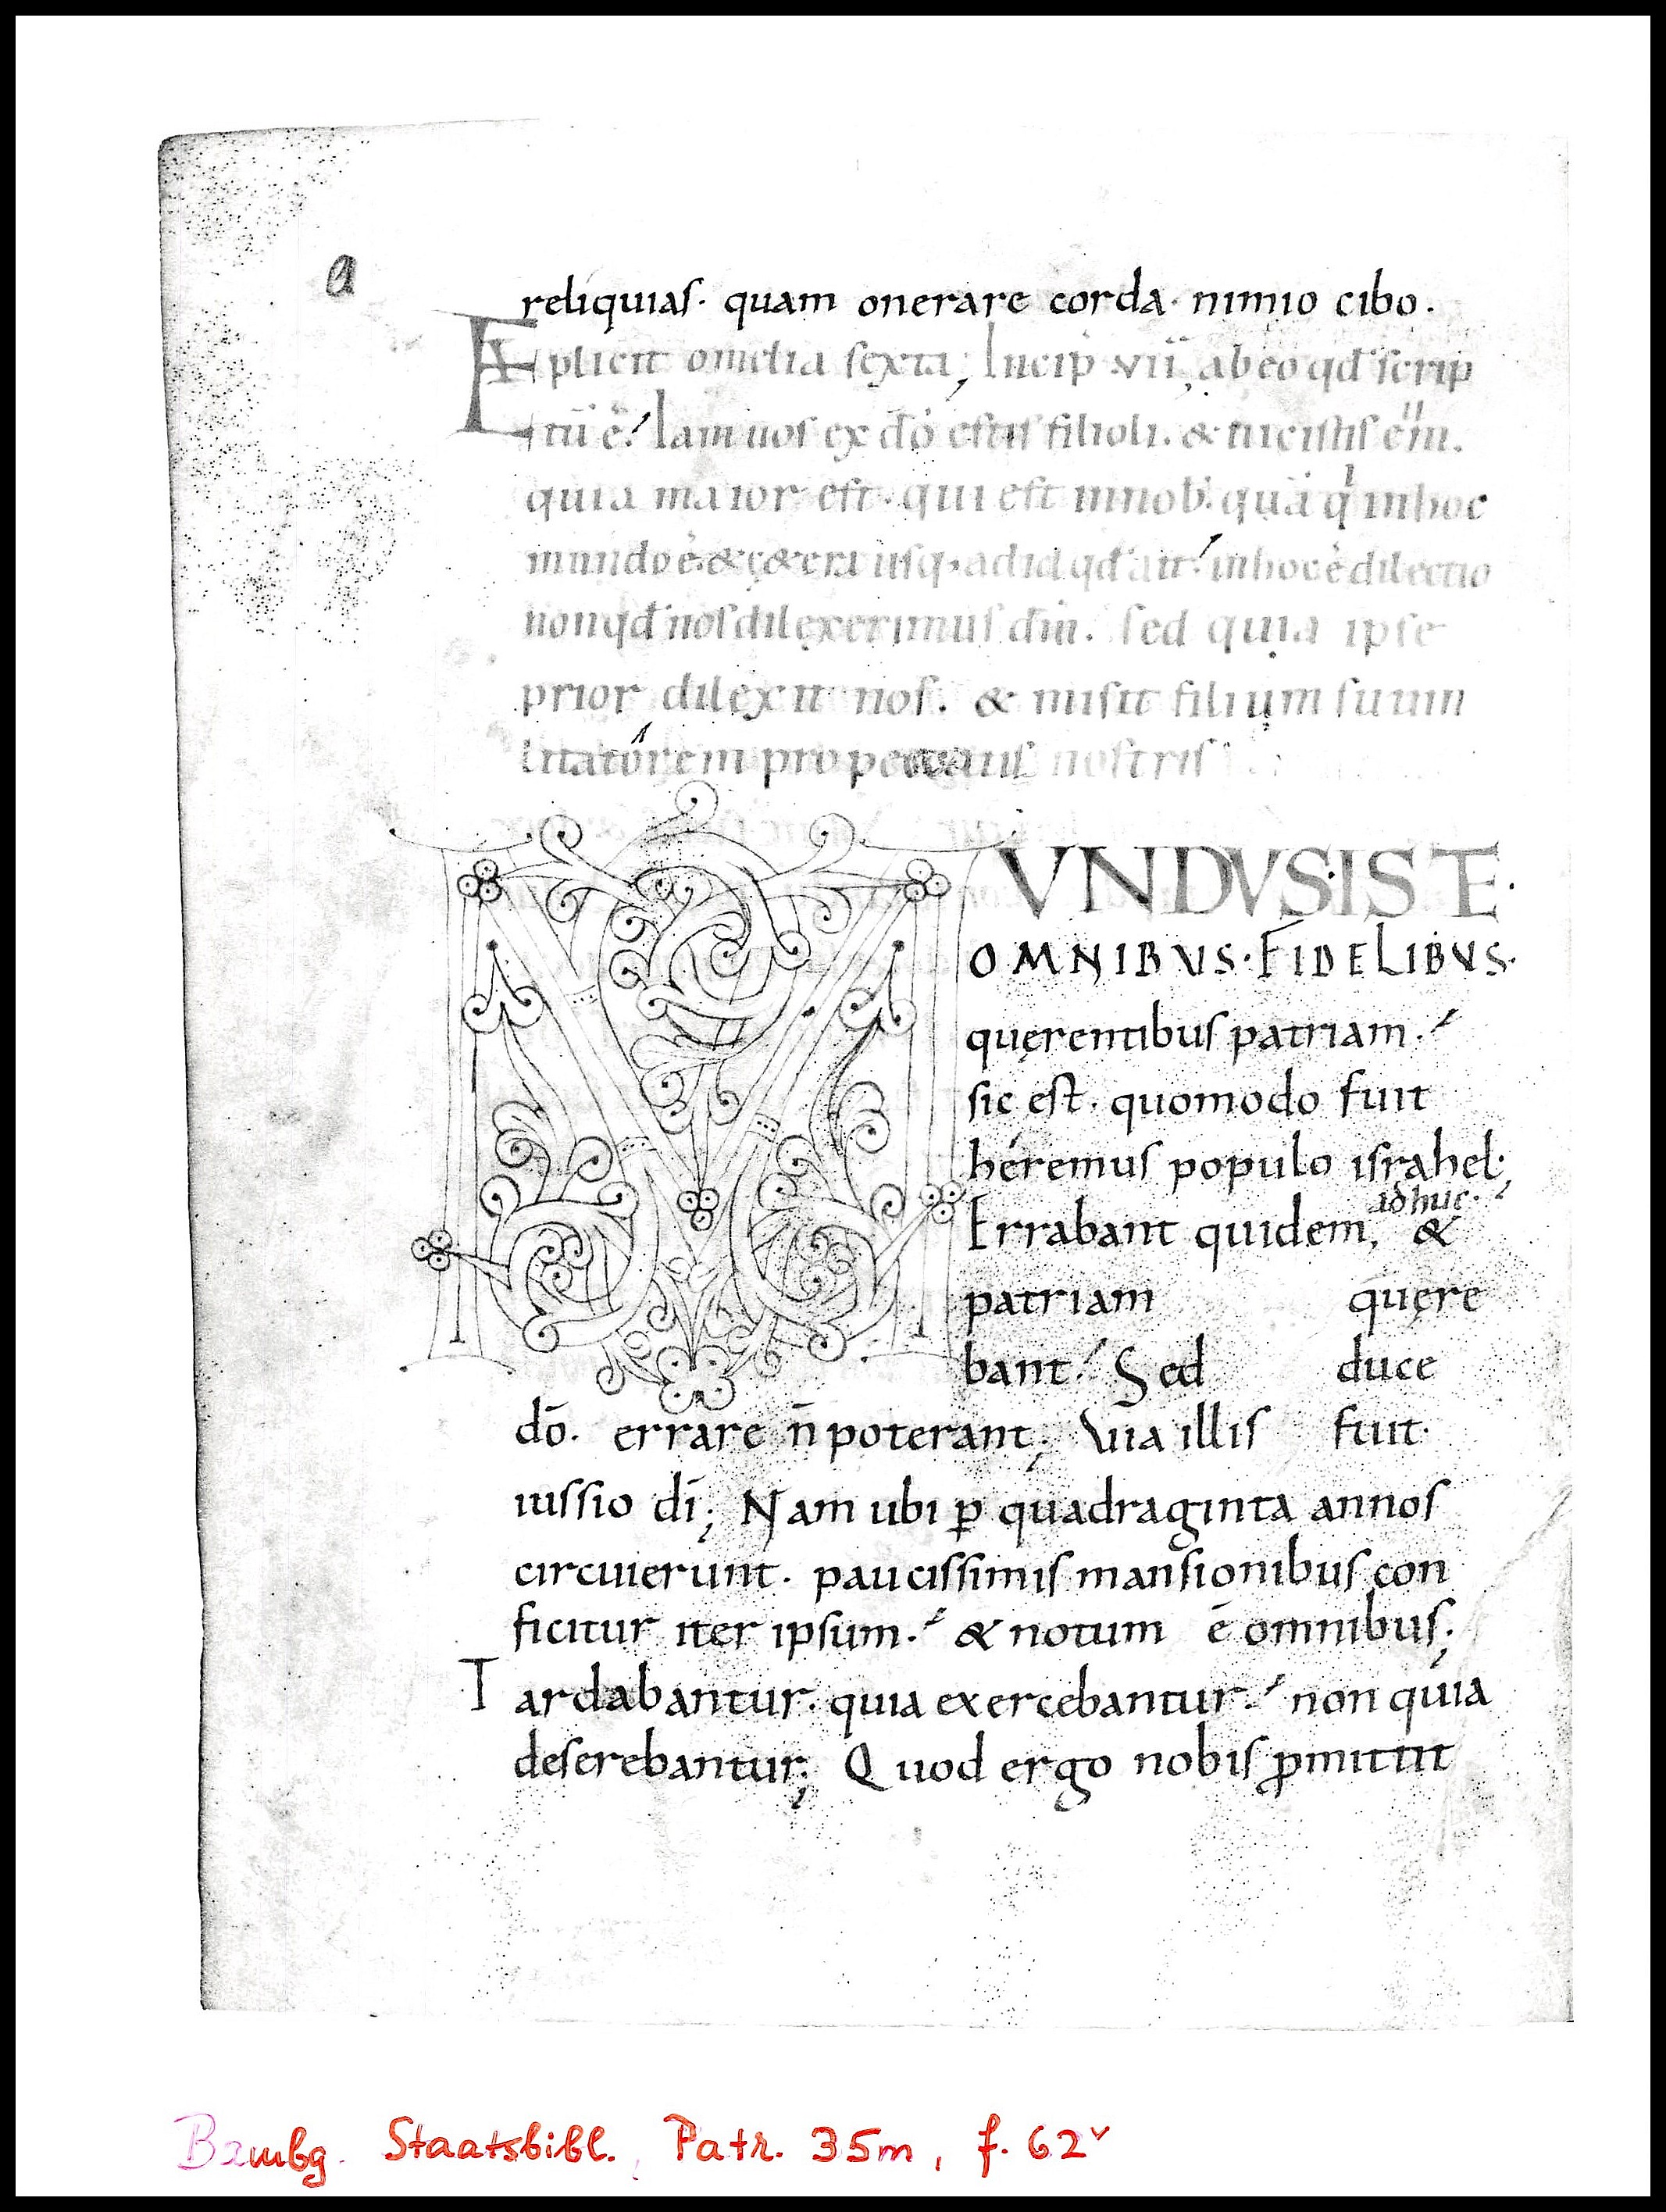 a
reliquias· quam onerare corda· nimio cibo.
Explicit omelia sexta; Incip̄ vii, ab eo qđ scrip
tū ē. Iam uos ex dō estis filioli. & uicistis eū.
quia maior est· qui est in nob. quā q̍ in hoc
mundo ē. & cętera usq· ad id qđ ait. in hoc ē dilectio
non qđ nos dilexerimus dm̄. sed quia ipse
prior dilexit nos. & misit filium suum
litatorem pro peccatis nostris
MVNDVS·ISTE·
OMNIBVS·FIDELIBVS·
quęrentibus patriam.
sic est. quomodo fuit
héremus populo israhel;
adhuc·
Errabant quidem, &
patriam quęre
bant. Sed duce
dō. errare n̄ poterant; Via illis fuit·
iussio dī; Nam ubi ꝑ quadraginta annos
circuierunt. paucissimis mansionibus con
ficitur iter ipsum. & notum ē omnibus;
Tardabantur. quia exercebantur. non quia
deserebantur; Quod ergo nobis ꝓmittit
Bambg. Staatsbibl., Patr. 35m, f. 62ᵛ